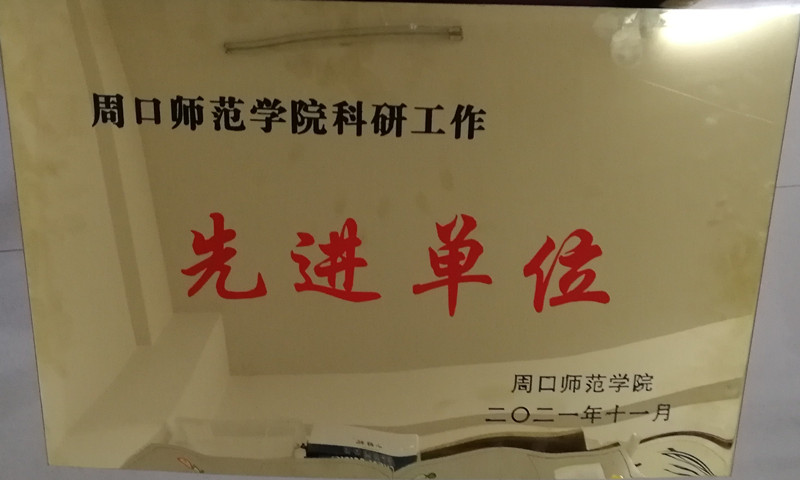 周口师范学院科研工作
先进单位
周口师范学院
二〇二一年十一月